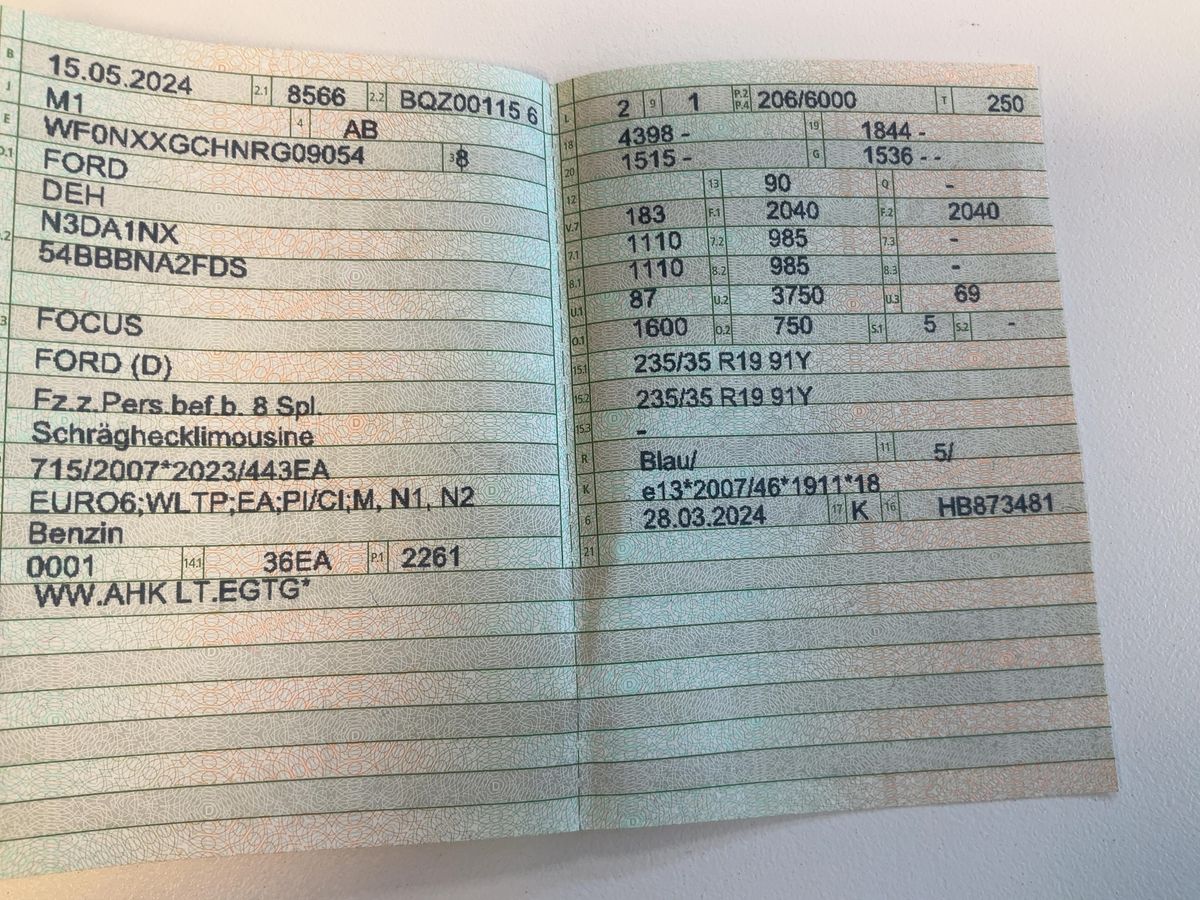 B 15.05.2024 2.1 8566 2.2 BQZ00115 6
J M1 4 AB
E WF0NXXGCHNRG09054 3 8
D.1 FORD
DEH
.2 N3DA1NX
54BBBNA2FDS
3 FOCUS
FORD (D)
Fz.z.Pers.bef.b. 8 Spl.
Schräghecklimousine
715/2007*2023/443EA
EURO6;WLTP;EA;PI/CI;M, N1, N2
Benzin
0001 14.1 36EA P.1 2261
WW.AHK LT.EGTG*
L 2 9 1 P.2 P.4 206/6000 T 250
18 4398 - 19 1844 -
20 1515 - G 1536 - -
12 13 90 Q -
V.7 183 F.1 2040 F.2 2040
7.1 1110 7.2 985 7.3 -
8.1 1110 8.2 985 8.3 -
U.1 87 U.2 3750 U.3 69
O.1 1600 O.2 750 S.1 5 S.2 -
15.1 235/35 R19 91Y
15.2 235/35 R19 91Y
15.3 -
R Blau/ 11 5/
K e13*2007/46*1911*18
6 28.03.2024 17 K 16 HB873481
21